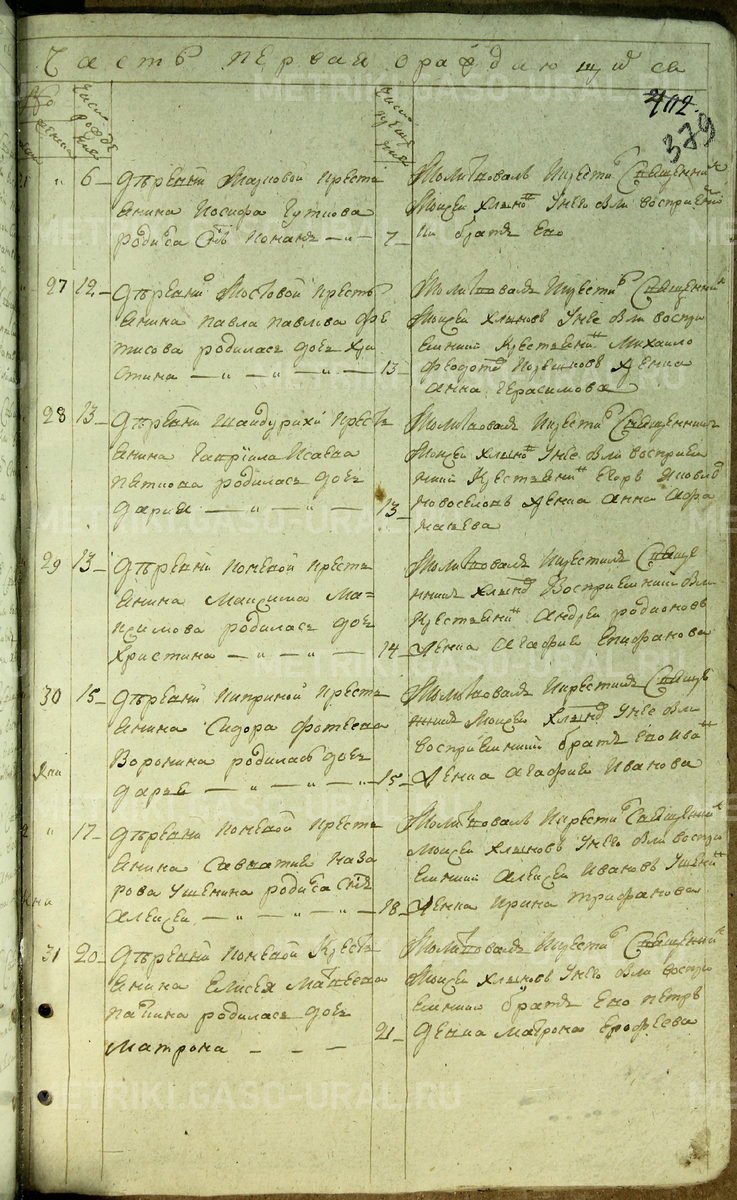 Часть первая о раждающихся
402.
379
21 " 6 Деревни Макловой крестья
янина Иосифа
родился сын Конанъ — " —
7 Молитвовалъ и крестилъ Священникъ
Моисей Хлыновъ у него были восприем
ни братъ ево
27 12 Деревни Мостовой кресть
янина Павла Павлова Фе
тисова родилась дочь Хри
стина — " — " — " —
13 Молитвовалъ и крестилъ Священникъ
Моисей Хлыновъ у нее были воспри
емники крестьянинъ Михайло
Федотовъ девица
Анна Герасимова
28 13 Деревни Шайдурихи кресть
янина Гаврiила Исаева
родилась дочь
Дария — " — " —
13 Молитвовалъ и крестилъ Священникъ
Моисей Хлыновъ у нее были восприем
ники крестьянинъ Егоръ Яковлев
Новоселовъ девица Анна Афа
насьева
29 13 Деревни Коневой кресть
янина Максима Ма=
ксимова родилась дочь
Христина — " — " —
14 Молитвовалъ и крестилъ Свяще
нникъ Хлыновъ Восприемники были
крестьянинъ Андрей Родионовъ
девица Агафия Епифанова
30 15 Деревни Киприной кресть
янина Сидора Фотеева
Воронина родилась дочь
Дарья — " — " — "
15 Молитвовалъ и крестилъ Свяще
нникъ Моисей Хлыновъ у нее были
восприемники братъ ево Иванъ
девица Агафия Иванова
22 " 17 Деревни Коневой кресть
янина Савватия Наза
рова Ушенина родился сынъ
Алексей — " — " — " —
18 Молитвовалъ и крестилъ Священникъ
Моисей Хлыновъ у него были воспри
емники Алексей Ивановъ Ушенинъ
девица Ирина Трифанова
31 20 Деревни Коневой кресть
янина Елисея Матвеева
родилась дочь
Матрона — — —
21 Молитвовалъ и крестилъ Священникъ
Моисей Хлыновъ у нее были воспри
емники братъ ево Петръ
девица Матрона Ерофеева
METRIKI.GASO-URAL.RU